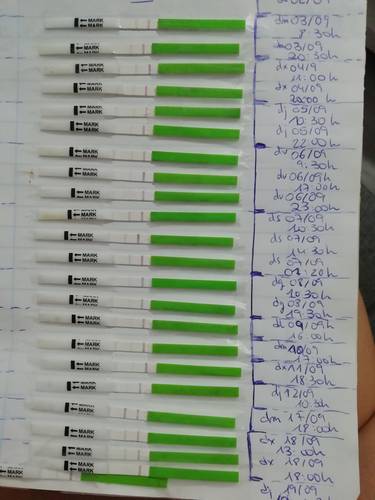 MARK
dm 03/09
8:30h
MARK
dm 03/09
20:30h
MARK
dx 04/9
11:00h
MARK
dx 04/09
22:00h
MARK
dj 05/09
10:30h
MARK
dj 05/09
22:00h
MARK
dv 06/09
9:30h
MARK
dv 06/09
17:00h
MARK
dv 06/09
23:00h
MARK
ds 07/09
10:30h
MARK
ds 07/09
14:30h
MARK
ds 07/09
MARK
dg 08/09
10:30h
MARK
dg 08/09
19:30h
MARK
dl 09/09h
16:00h
MARK
dm 10/09
17:00h
MARK
dx 11/09
18:30h
MARK
dj 12/09
10:30h
MARK
dm 17/09
18:00h
MARK
dx 18/09
13:00h
MARK
dx 18/09
18:00h
MARK
dj 19/09